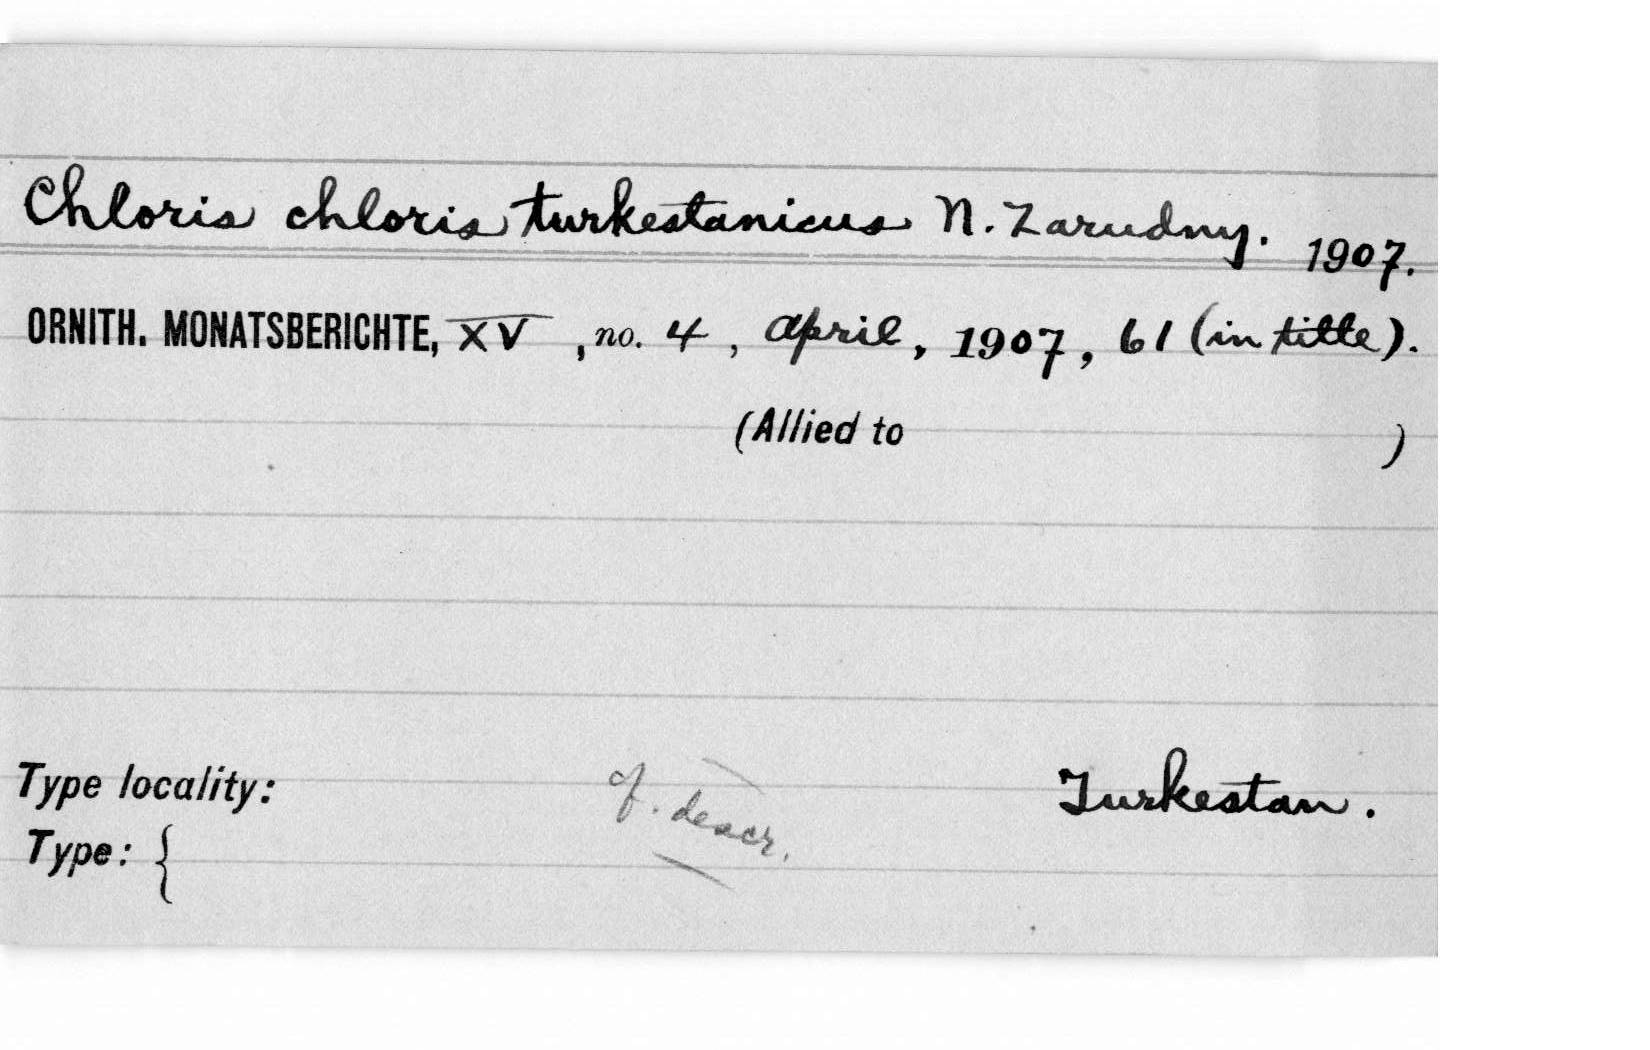 Chloris chloris turkestanicus N. Zarudny. 1907.
ORNITH. MONATSBERICHTE, XV, no. 4, April, 1907, 61 (in title).
(Allied to )
Type locality: Turkestan.
descr.
Type: {